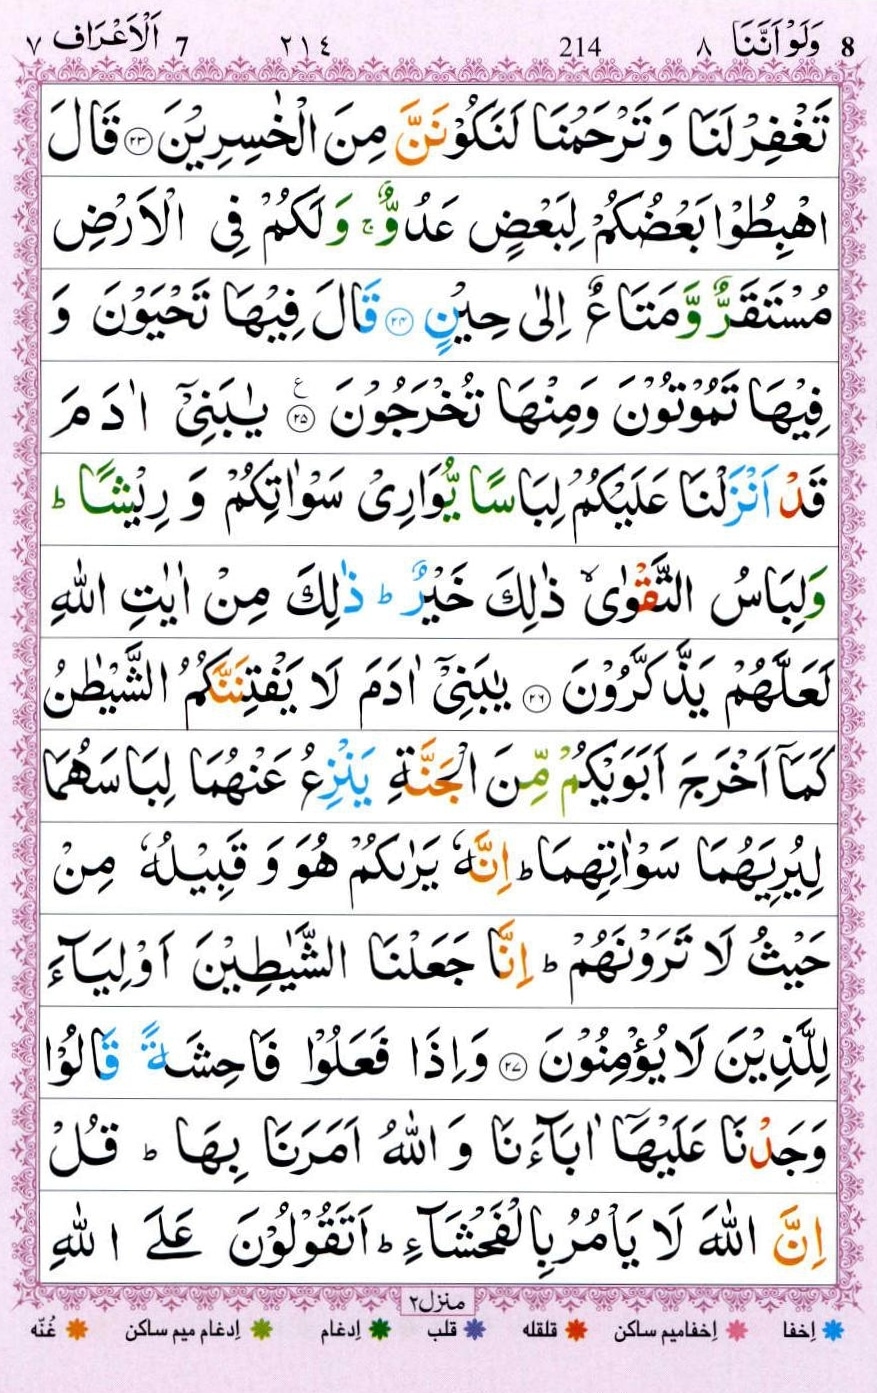 8 وَلَوْ اَنَّنَا ٨ 214 ٢١٤ 7 اَلْاَعْرَاف ٧
تَغْفِرْ لَنَا وَ تَرْحَمْنَا لَنَكُوْنَنَّ مِنَ الْخٰسِرِيْنَ ۝٢٣ قَالَ
اهْبِطُوْا بَعْضُكُمْ لِبَعْضٍ عَدُوٌّ ۚ وَ لَكُمْ فِی الْاَرْضِ
مُسْتَقَرٌّ وَّ مَتَاعٌ اِلٰى حِيْنٍ ۝٢٤ قَالَ فِيْهَا تَحْيَوْنَ وَ
فِيْهَا تَمُوْتُوْنَ وَمِنْهَا تُخْرَجُوْنَ ۝٢٥ ع يٰبَنِیْۤ اٰدَمَ
قَدْ اَنْزَلْنَا عَلَيْكُمْ لِبَاسًا يُّوَارِیْ سَوْاٰتِكُمْ وَ رِيْشًا ؕ
وَلِبَاسُ التَّقْوٰى ۙ ذٰلِكَ خَيْرٌ ؕ ذٰلِكَ مِنْ اٰيٰتِ اللّٰهِ
لَعَلَّهُمْ يَذَّكَّرُوْنَ ۝٢٦ يٰبَنِیْۤ اٰدَمَ لَا يَفْتِنَنَّكُمُ الشَّيْطٰنُ
كَمَاۤ اَخْرَجَ اَبَوَيْكُمْ مِّنَ الْجَنَّةِ يَنْزِعُ عَنْهُمَا لِبَاسَهُمَا
لِيُرِيَهُمَا سَوْاٰتِهِمَا ؕ اِنَّهٗ يَرٰىكُمْ هُوَ وَ قَبِيْلُهٗ مِنْ
حَيْثُ لَا تَرَوْنَهُمْ ؕ اِنَّا جَعَلْنَا الشَّيٰطِيْنَ اَوْلِيَآءَ
لِلَّذِيْنَ لَا يُؤْمِنُوْنَ ۝٢٧ وَاِذَا فَعَلُوْا فَاحِشَةً قَالُوْا
وَجَدْنَا عَلَيْهَاۤ اٰبَآءَنَا وَ اللّٰهُ اَمَرَنَا بِهَا ؕ قُلْ
اِنَّ اللّٰهَ لَا يَاْمُرُ بِالْفَحْشَآءِ ؕ اَتَقُوْلُوْنَ عَلَى اللّٰهِ
منزل٢
اِخفا اِخفامیم ساکن قلقله قلب اِدغام اِدغام میم ساکن غُنّه